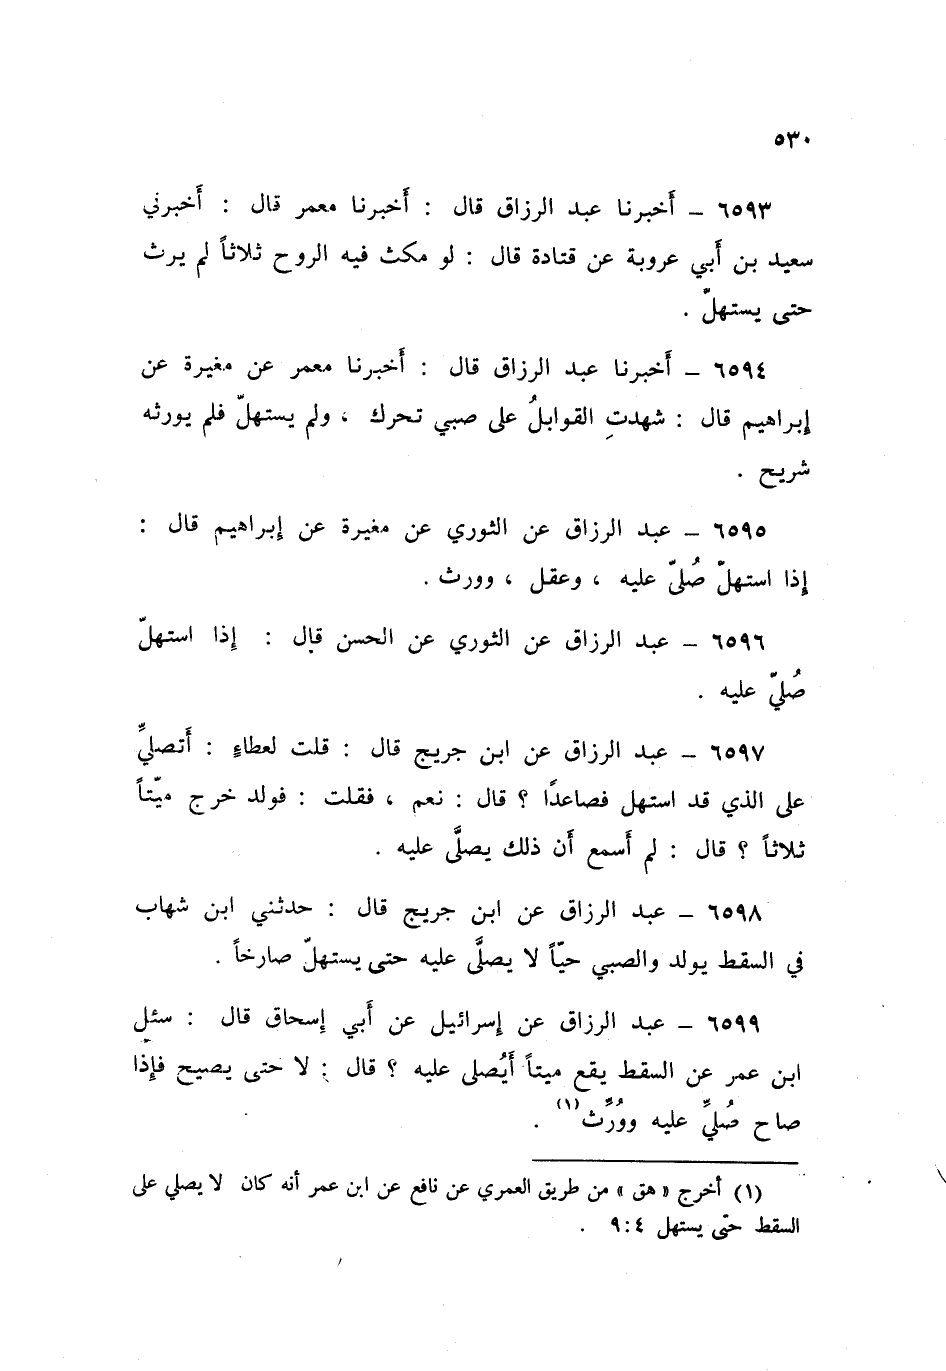 ٥٣٠
٦٥٩٣ – أَخبرنا عبد الرزاق قال : أَخبرنا معمر قال : أَخبرني
سعيد بن أَبي عروبة عن قتادة قال : لو مكث فيه الروح ثلاثاً لم يرث
حتى يستهلّ .
٦٥٩٤ – أَخبرنا عبد الرزاق قال : أَخبرنا معمر عن مغيرة عن
إبراهيم قال : شهدتِ القوابلُ على صبي تحرك ، ولم يستهلّ فلم يورثه
شريح .
٦٥٩٥ – عبد الرزاق عن الثوري عن مغيرة عن إبراهيم قال :
إذا استهلّ صُليّ عليه ، وعقل ، وورث .
٦٥٩٦ – عبد الرزاق عن الثوري عن الحسن قال : إذا استهلّ
صُليّ عليه .
٦٥٩٧ – عبد الرزاق عن ابن جريج قال : قلت لعطاءٍ : أَتصليِّ
على الذي قد استهل فصاعدًا ؟ قال : نعم ، فقلت : فولد خرج ميّتاً
ثلاثاً ؟ قال : لم أَسمع أَن ذلك يصلَّى عليه .
٦٥٩٨ – عبد الرزاق عن ابن جريج قال : حدثني ابن شهاب
في السقط يولد والصبي حيّاً لا يصلَّى عليه حتى يستهلّ صارخاً .
٦٥٩٩ – عبد الرزاق عن إسرائيل عن أَبي إسحاق قال : سئل
ابن عمر عن السقط يقع ميتاً أَيُصلى عليه ؟ قال : لا حتى يصيح فإذا
صاح صُليِّ عليه ووُرِّث(١) .
(١) أخرج « هق » من طريق العمري عن نافع عن ابن عمر أنه كان لا يصلي على
السقط حتّى يستهل ٤ : ٩ .